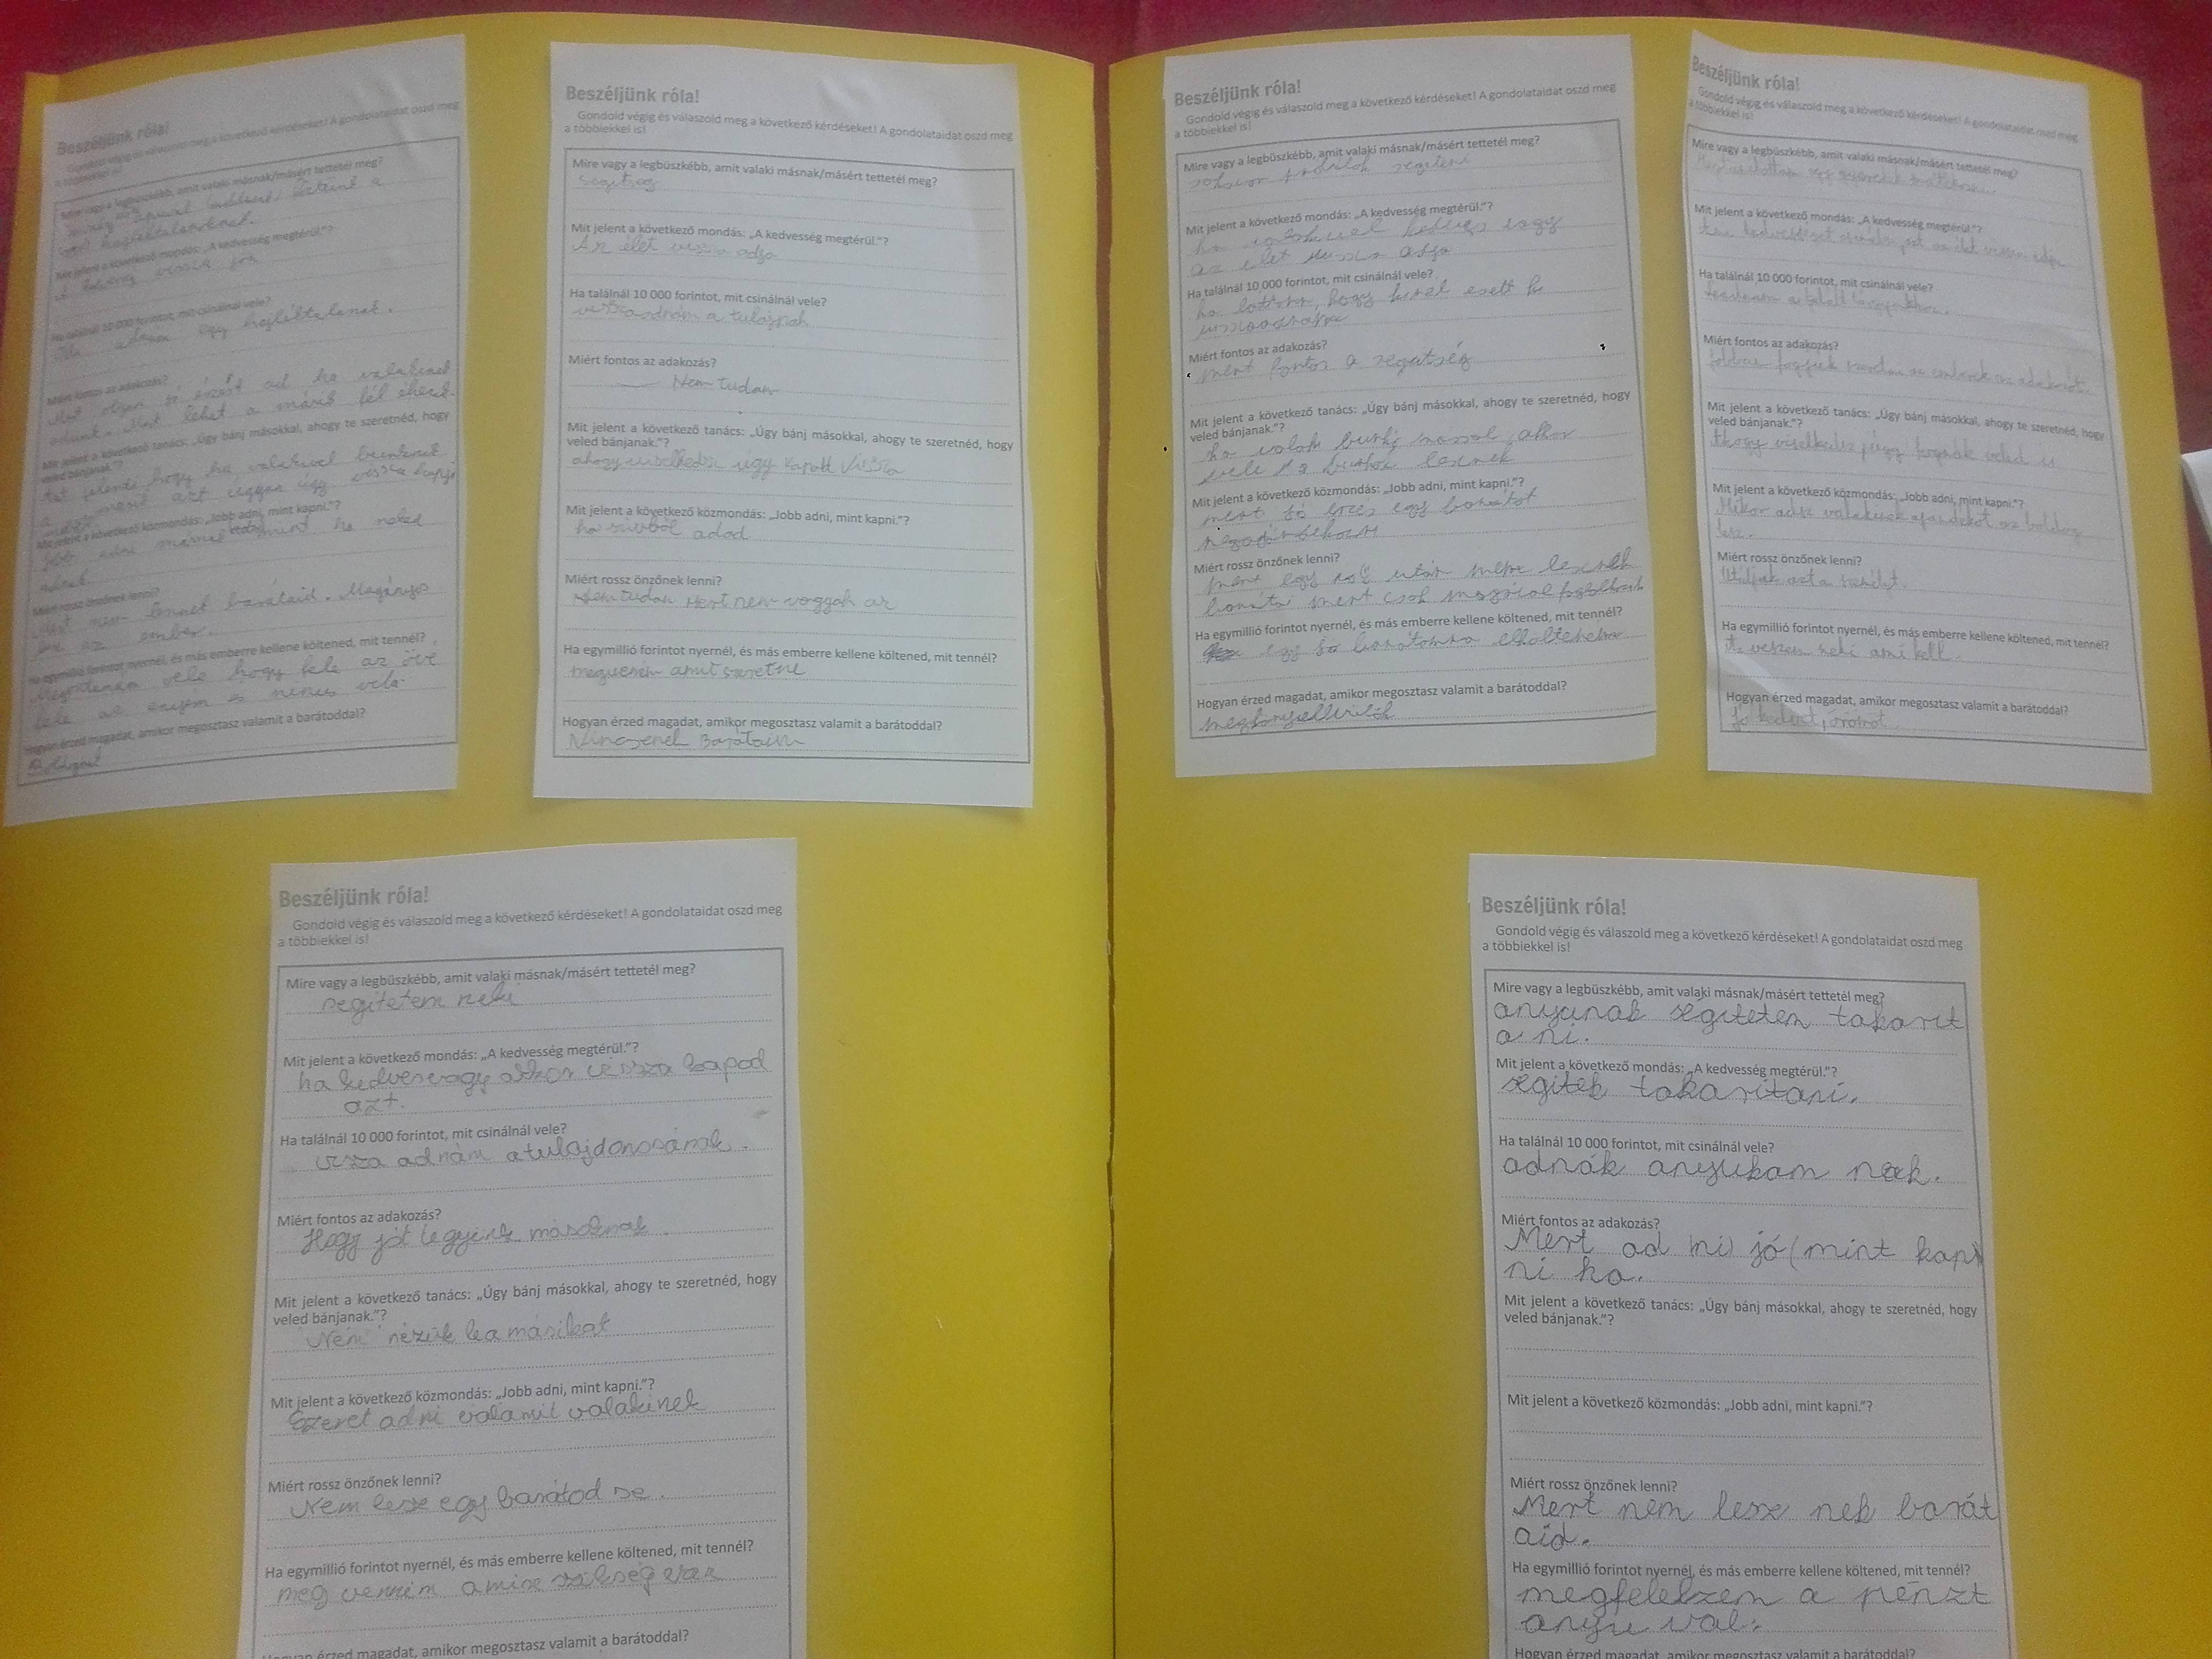 Beszéljünk róla!
Gondold végig és válaszold meg a következő kérdéseket! A gondolataidat oszd meg
a többiekkel is!
Mire vagy a legbüszkébb, amit valaki másnak/másért tettetél meg?
Mit jelent a következő mondás: „A kedvesség megtérül."?
vissza jön
Ha találnál 10 000 forintot, mit csinálnál vele?
egy hajléktalannak.
Miért fontos az adakozás?
Mert olyan jó érzést ad ha valakinek
adunk. Mert lehet a másik fél éhezik.
Mit jelent a következő tanács: „Úgy bánj másokkal, ahogy te szeretnéd, hogy
veled bánjanak."?
Azt jelenti hogy ha valakivel
azt ugyan úgy vissza kapja
Mit jelent a következő közmondás: „Jobb adni, mint kapni."?
Jobb adni másnak mint ha neked
adnak
Miért rossz önzőnek lenni?
Mert nem lennek barátaid. Magányos
az ember.
Ha egymillió forintot nyernél, és más emberre kellene költened, mit tennél?
Megosztanám vele hogy fele az övé
fele az enyém és
Hogyan érzed magadat, amikor megosztasz valamit a barátoddal?
Beszéljünk róla!
Gondold végig és válaszold meg a következő kérdéseket! A gondolataidat oszd meg
a többiekkel is!
Mire vagy a legbüszkébb, amit valaki másnak/másért tettetél meg?
segítség
Mit jelent a következő mondás: „A kedvesség megtérül."?
Az élet vissza adja
Ha találnál 10 000 forintot, mit csinálnál vele?
visszaadnám a tulajnak
Miért fontos az adakozás?
Nem tudam
Mit jelent a következő tanács: „Úgy bánj másokkal, ahogy te szeretnéd, hogy
veled bánjanak."?
ahogy viselkedsz úgy kapott vissza
Mit jelent a következő közmondás: „Jobb adni, mint kapni."?
ha szivből adod
Miért rossz önzőnek lenni?
Nem tudam Mert nem vagyok az
Ha egymillió forintot nyernél, és más emberre kellene költened, mit tennél?
megvenem amit szeretne
Hogyan érzed magadat, amikor megosztasz valamit a barátoddal?
Nincsenek Barátaim
Beszéljünk róla!
Gondold végig és válaszold meg a következő kérdéseket! A gondolataidat oszd meg
a többiekkel is!
Mire vagy a legbüszkébb, amit valaki másnak/másért tettetél meg?
sokszor próbálok segíteni
Mit jelent a következő mondás: „A kedvesség megtérül."?
ha valakivel kedves vagy
az élet vissza adja
Ha találnál 10 000 forintot, mit csinálnál vele?
ha láttam, hogy kinél esett ki
visszaadnám
Miért fontos az adakozás?
mert fontos a segítség
Mit jelent a következő tanács: „Úgy bánj másokkal, ahogy te szeretnéd, hogy
veled bánjanak."?
ha valaki bunkó mással akkor
vele is bunkók lesznek
Mit jelent a következő közmondás: „Jobb adni, mint kapni."?
mert jó érzés egy barátot
Miért rossz önzőnek lenni?
mert egy idő után nem lesznek
barátai mert csak magával
Ha egymillió forintot nyernél, és más emberre kellene költened, mit tennél?
egy jó barátomra elkölteném
Hogyan érzed magadat, amikor megosztasz valamit a barátoddal?
megkönyebbülök
Beszéljünk róla!
Gondold végig és válaszold meg a következő kérdéseket! A gondolataidat oszd meg
a többiekkel is!
Mire vagy a legbüszkébb, amit valaki másnak/másért tettetél meg?
Mit jelent a következő mondás: „A kedvesség megtérül."?
Ha találnál 10 000 forintot, mit csinálnál vele?
Miért fontos az adakozás?
Mit jelent a következő tanács: „Úgy bánj másokkal, ahogy te szeretnéd, hogy
veled bánjanak."?
Ahogy viselkedsz úgy fognak veled is
Mit jelent a következő közmondás: „Jobb adni, mint kapni."?
Mikor adsz valakinek ajándékot az boldog
lesz.
Miért rossz önzőnek lenni?
Utálják azt a személyt.
Ha egymillió forintot nyernél, és más emberre kellene költened, mit tennél?
veszek neki ami kell.
Hogyan érzed magadat, amikor megosztasz valamit a barátoddal?
Jó kedvet, örömöt
Beszéljünk róla!
Gondold végig és válaszold meg a következő kérdéseket! A gondolataidat oszd meg
a többiekkel is!
Mire vagy a legbüszkébb, amit valaki másnak/másért tettetél meg?
segítetem neki
Mit jelent a következő mondás: „A kedvesség megtérül."?
ha kedvesvagy akkor vissza kapod
azt.
Ha találnál 10 000 forintot, mit csinálnál vele?
visza adnám atulajdonosának.
Miért fontos az adakozás?
Hogy jót tegyünk másoknak.
Mit jelent a következő tanács: „Úgy bánj másokkal, ahogy te szeretnéd, hogy
veled bánjanak."?
Nem nézük le a másikat
Mit jelent a következő közmondás: „Jobb adni, mint kapni."?
Szeret adni valamit valakinek
Miért rossz önzőnek lenni?
Nem lesz egy barátod se.
Ha egymillió forintot nyernél, és más emberre kellene költened, mit tennél?
meg venném amire szükség van
Hogyan érzed magadat, amikor megosztasz valamit a barátoddal?
Beszéljünk róla!
Gondold végig és válaszold meg a következő kérdéseket! A gondolataidat oszd meg
a többiekkel is!
Mire vagy a legbüszkébb, amit valaki másnak/másért tettetél meg?
anyunak segitetem takarit
a ni.
Mit jelent a következő mondás: „A kedvesség megtérül."?
segitek takaritani.
Ha találnál 10 000 forintot, mit csinálnál vele?
adnák anyukam nak.
Miért fontos az adakozás?
Mert ad ni jó mint kap
ni ka.
Mit jelent a következő tanács: „Úgy bánj másokkal, ahogy te szeretnéd, hogy
veled bánjanak."?
Mit jelent a következő közmondás: „Jobb adni, mint kapni."?
Miért rossz önzőnek lenni?
Mert nem lesz nek barát
aid.
Ha egymillió forintot nyernél, és más emberre kellene költened, mit tennél?
megfelelzem a pénzt
anyu val.
Hogyan érzed magadat, amikor megosztasz valamit a barátoddal?